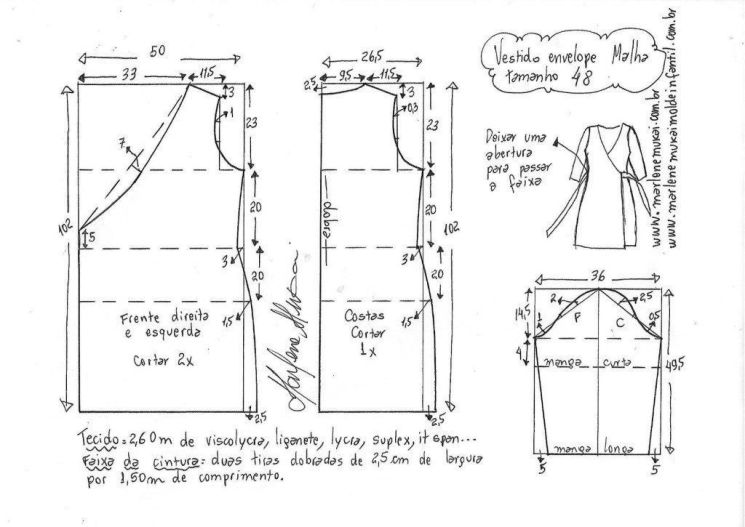 50
33
11,5
3
1
23
7
102
5
20
3
20
1,5
2,5
Frente direita
e esquerda
Cortar 2x
26,5
2,5
9,5
11,5
3
0,3
23
dobra
20
102
3
20
1,5
2,5
Costas
Cortar
1x
Marlene Mukai
Vestido envelope Malha
tamanho 48
Deixar uma
abertura
para passar
a faixa
www.marlenemukai.com.br
www.marlenemukaimoldeinfantil.com.br
36
14,5
2
2,5
1
F
C
0,5
4
manga curta
49,5
manga longa
5
5
Tecido = 2,60m de viscolycra, liganete, lycra, suplex, it span...
Faixa da cintura: duas tiras dobradas de 2,5 cm de largura
por 1,50m de comprimento.